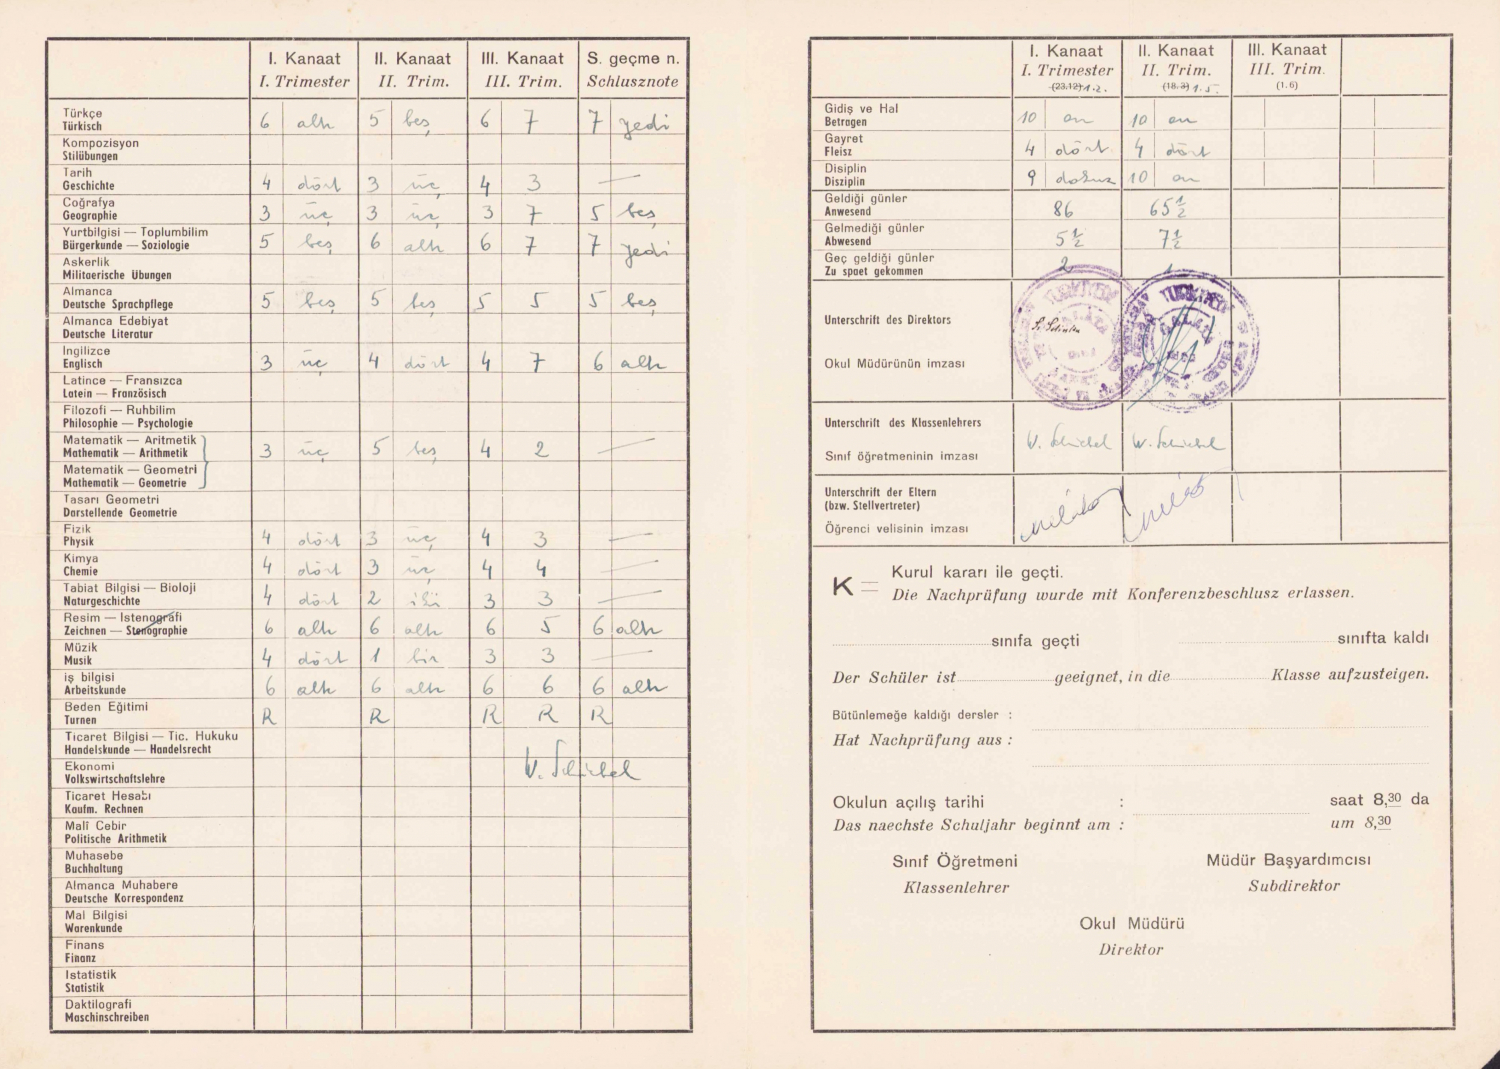 I. Kanaat II. Kanaat III. Kanaat S. geçme n.
I. Trimester II. Trim. III. Trim. Schlusznote
Türkçe
Türkisch 6 altı 5 beş 6 7 7 yedi
Kompozisyon
Stilübungen
Tarih
Geschichte 4 dört 3 üç 4 3 —
Coğrafya
Geographie 3 üç 3 üç 3 7 5 beş
Yurtbilgisi — Toplumbilim
Bürgerkunde — Soziologie 5 beş 6 altı 6 7 7 yedi
Askerlik
Militaerische Übungen
Almanca
Deutsche Sprachpflege 5 beş 5 beş 5 5 5 beş
Almanca Edebiyat
Deutsche Literatur
Ingilizce
Englisch 3 üç 4 dört 4 7 6 altı
Latince — Fransızca
Latein — Französisch
Filozofi — Ruhbilim
Philosophie — Psychologie
Matematik — Aritmetik
Mathematik — Arithmetik 3 üç 5 beş 4 2 —
Matematik — Geometri
Mathematik — Geometrie
Tasarı Geometri
Darstellende Geometrie
Fizik
Physik 4 dört 3 üç 4 3 —
Kimya
Chemie 4 dört 3 üç 4 4 —
Tabiat Bilgisi — Bioloji
Naturgeschichte 4 dört 2 iki 3 3 —
Resim — Istenografi
Zeichnen — Stenographie 6 altı 6 altı 6 5 6 altı
Müzik
Musik 4 dört 1 bir 3 3 —
iş bilgisi
Arbeitskunde 6 altı 6 altı 6 6 6 altı
Beden Eğitimi
Turnen R R R R R
Ticaret Bilgisi — Tic. Hukuku
Handelskunde — Handelsrecht
Ekonomi
Volkswirtschaftslehre W. Schibel
Ticaret Hesabı
Kaufm. Rechnen
Malî Cebir
Politische Arithmetik
Muhasebe
Buchhaltung
Almanca Muhabere
Deutsche Korrespondenz
Mal Bilgisi
Warenkunde
Finans
Finanz
Istatistik
Statistik
Daktilografi
Maschinschreiben
I. Kanaat II. Kanaat III. Kanaat
I. Trimester II. Trim. III. Trim.
(23.12) 1.2. (18.3) 1.5. (1.6)
Gidiş ve Hal
Betragen 10 on 10 on
Gayret
Fleisz 4 dört 4 dört
Disiplin
Disziplin 9 dokuz 10 on
Geldiği günler
Anwesend 86 65½
Gelmediği günler
Abwesend 5½ 7½
Geç geldiği günler
Zu spaet gekommen 2 1
Unterschrift des Direktors
Okul Müdürünün imzası
Unterschrift des Klassenlehrers
Sınıf öğretmeninin imzası W. Schibel W. Schibel
Unterschrift der Eltern
(bzw. Stellvertreter)
Öğrenci velisinin imzası
K = Kurul kararı ile geçti.
Die Nachprüfung wurde mit Konferenzbeschlusz erlassen.
sınıfa geçti sınıfta kaldı
Der Schüler ist geeignet, in die Klasse aufzusteigen.
Bütünlemeğe kaldığı dersler :
Hat Nachprüfung aus :
Okulun açılış tarihi : saat 8,30 da
Das naechste Schuljahr beginnt am : um 8,30
Sınıf Öğretmeni Müdür Başyardımcısı
Klassenlehrer Subdirektor
Okul Müdürü
Direktor